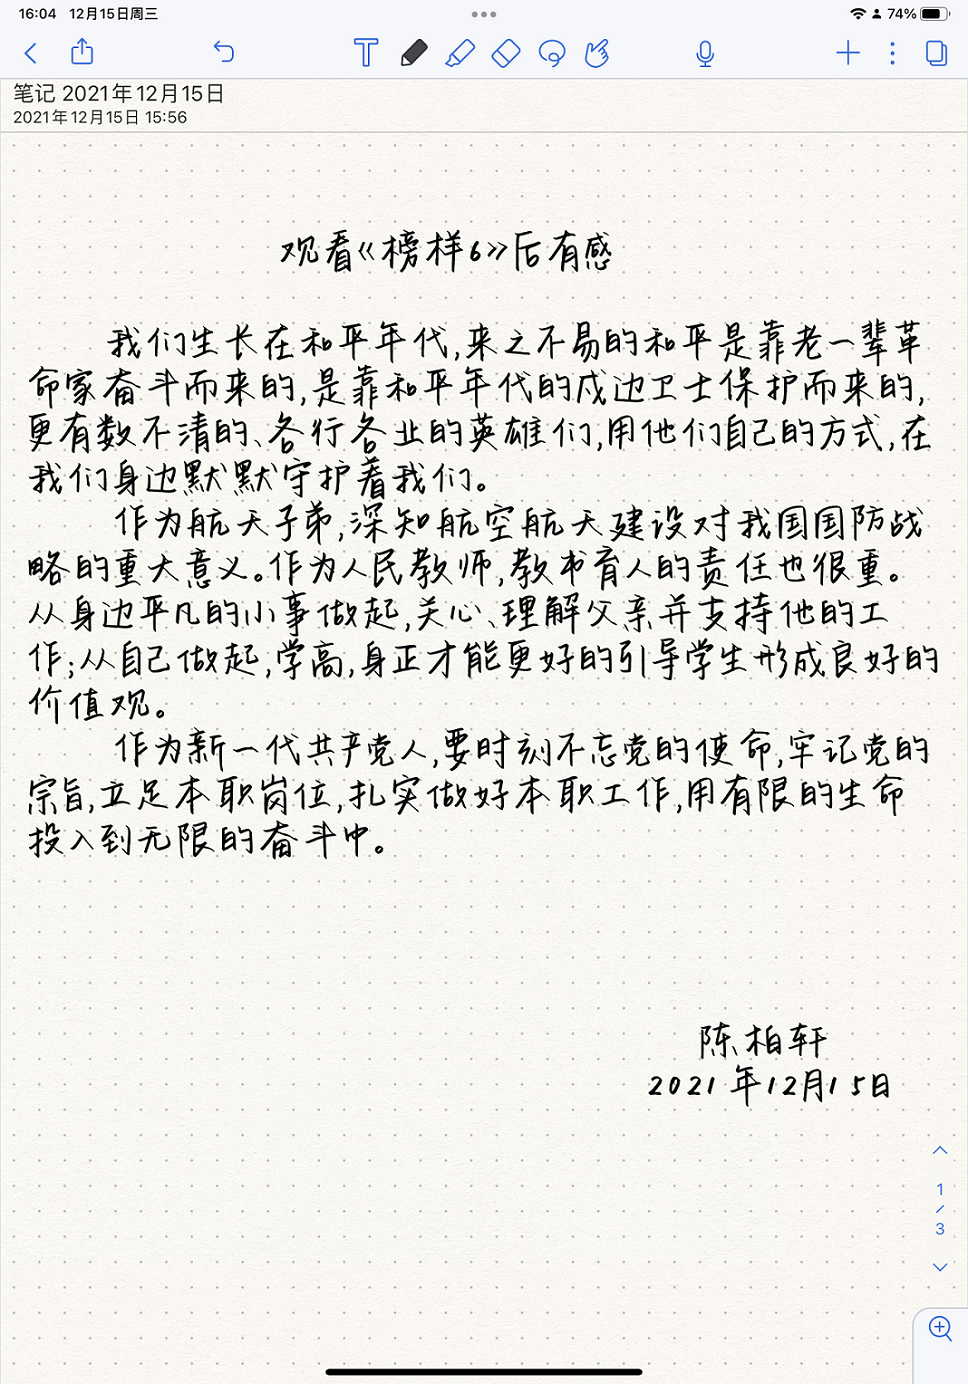 16:04 12月15日周三
74%
笔记 2021年12月15日
2021年12月15日 15:56
观看《榜样6》后有感
我们生长在和平年代,来之不易的和平是靠老一辈革
命家奋斗而来的,是靠和平年代的戍边卫士保护而来的,
更有数不清的、各行各业的英雄们,用他们自己的方式,在
我们身边默默守护着我们。
作为航天子弟,深知航空航天建设对我国国防战
略的重大意义。作为人民教师,教书育人的责任也很重。
从身边平凡的小事做起,关心、理解父亲并支持他的工
作;从自己做起,学高,身正才能更好的引导学生形成良好的
价值观。
作为新一代共产党人,要时刻不忘党的使命,牢记党的
宗旨,立足本职岗位,扎实做好本职工作,用有限的生命
投入到无限的奋斗中。
陈柏轩
2021年12月15日
1
/
3